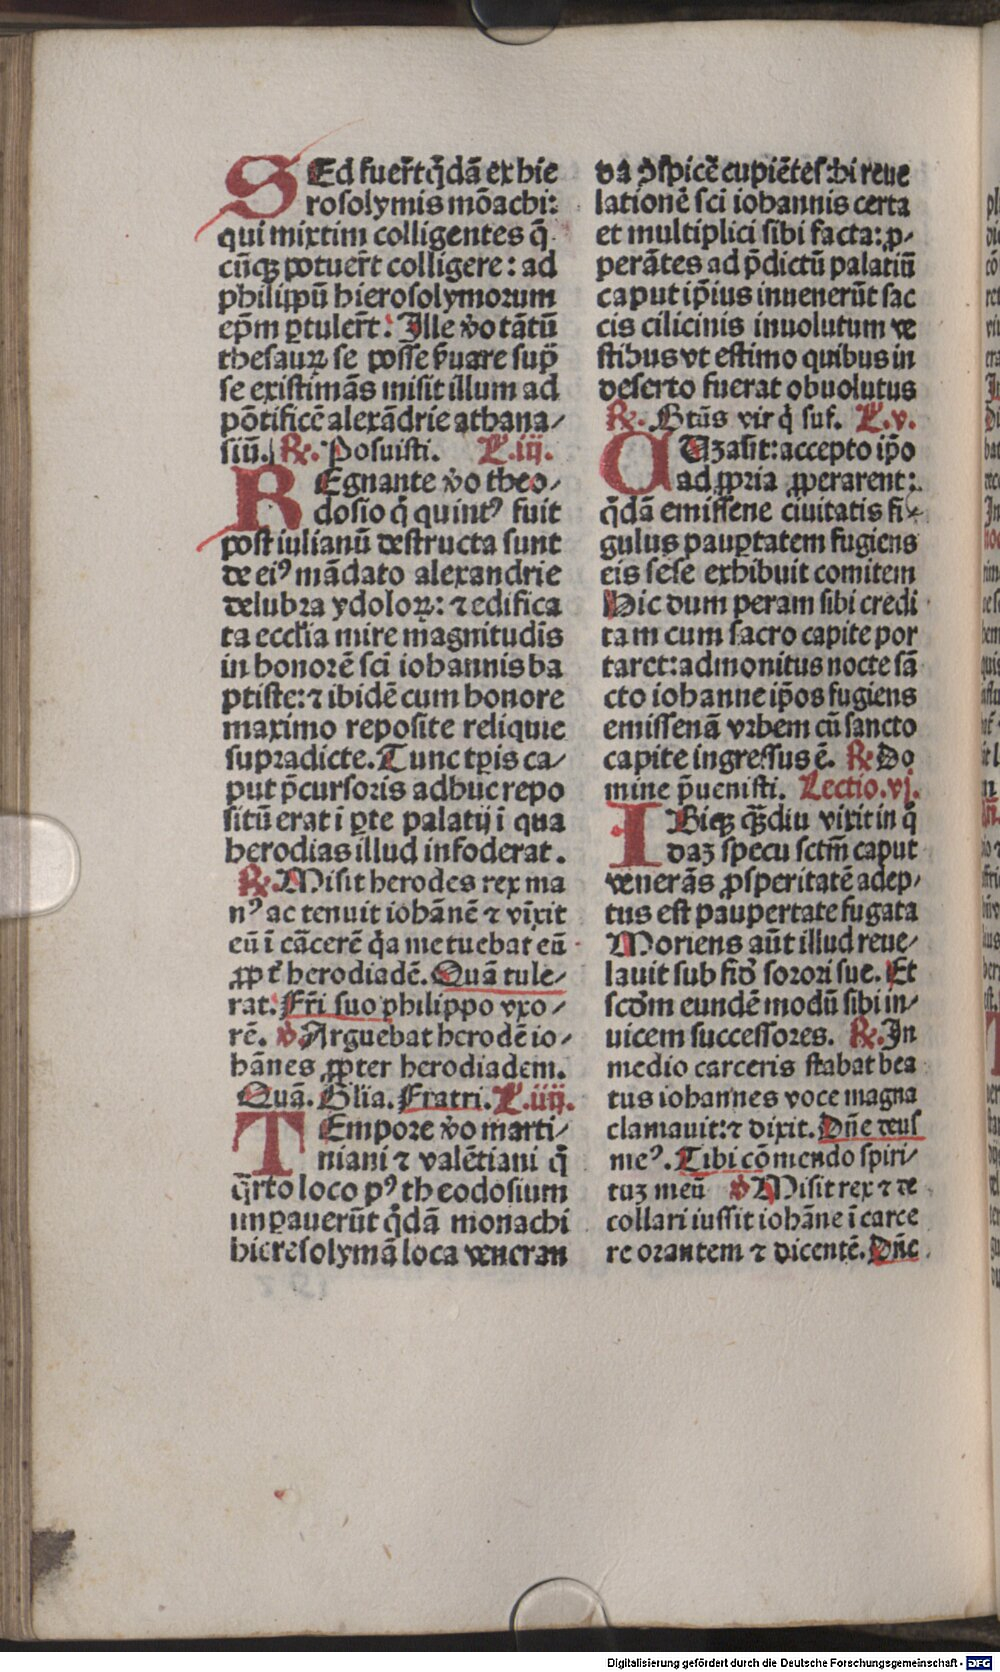 SEd fuer̃t q̃dã ex hie
rosolymis mõachi:
qui mixtim colligentes q̃
cũqꝫ potuer̃t colligere: ad
philippũ hierosolymorum
ep̃m ꝑtuler̃t. Ille ṽo tãtũ
thesaurꝝ se posse ṽuare sup̃
se existimãs misit illum ad
põtificẽ alexãdrie athana⸗
siũ. ℟. Posuisti. L.iij.
REgnante ṽo theo⸗
dosio q̃ quintꝰ fuit
post iulianũ destructa sunt
de eiꝰ mãdato alexandrie
delubra ydoloꝝ: ⁊ edifica
ta eccl̃ia mire magnitudĩs
in honorẽ sc̃i iohannis ba
ptiste: ⁊ ibidẽ cum honore
maximo reposite reliquie
supradicte. Tunc tp̃is ca⸗
put p̃cursoris adhuc repo
sitũ erat ĩ ꝑte palatij ĩ qua
herodias illud infoderat.
℟. Misit herodes rex ma
nꝰ ac tenuit iohãnẽ ⁊ vĩxit
eũ ĩ cãcerẽ q̃a metuebat eũ
ꝓpt̃ herodiadẽ. Quã tule⸗
rat. Fr̃i suo philippo vxo⸗
rẽ. ℣. Arguebat herodẽ io⸗
hãnes ꝓpter herodiadem.
Quã. Gl̃ia. Fratri. L.iiij.
TEmpore ṽo marti⸗
niani ⁊ valẽtiani q̃
q̃rto loco pꝰ theodosium
impauerũt q̃dã monachi
hierosolymã loca veneran
da ꝓspicẽ cupiẽtes: hi reue
lationẽ sc̃i iohannis certa
et multiplici sibi facta: ꝓ⸗
perãtes ad p̃dictũ palatiũ
caput ip̃ius inuenerũt sac
cis cilicinis inuolutum ve
stibus vt estimo quibus in
deserto fuerat obuolutus
℟. Btũs vir q̃ suf. L.v.
QUẽ asit: accepto ip̃o
ad ꝓpria ꝓperarent:
q̃dã emissene ciuitatis fi⸗
gulus pauꝑtatem fugiens
eis sese exhibuit comitem
Hic dum peram sibi credi
tam cum sacro capite por
taret: admonitus nocte sã
cto iohanne ip̃os fugiens
emissenã vrbem cũ sancto
capite ingressus ẽ. ℟ Do
mine p̃uenisti. Lectio.vj.
IBiqꝫ qꝫdiu vixit in q̃
daꝫ specu sctm̃ caput
venerãs ꝓsperitatẽ adep⸗
tus est paupertate fugata
Moriens aũt illud reue⸗
lauit sub fid̃ sorori sue. Et
scd̃m eundẽ modũ sibi in⸗
uicem successores. ℟. In
medio carceris stabat bea
tus iohannes voce magna
clamauit: ⁊ dixit. Dñe deus
meꝰ. Tibi cõmendo spiri⸗
tuꝫ meũ ℣ Misit rex ⁊ de
collari iussit iohãne ĩ carce
re orantem ⁊ dicentẽ. Dñe.
Digitalisierung gefördert durch die Deutsche Forschungsgemeinschaft - DFG